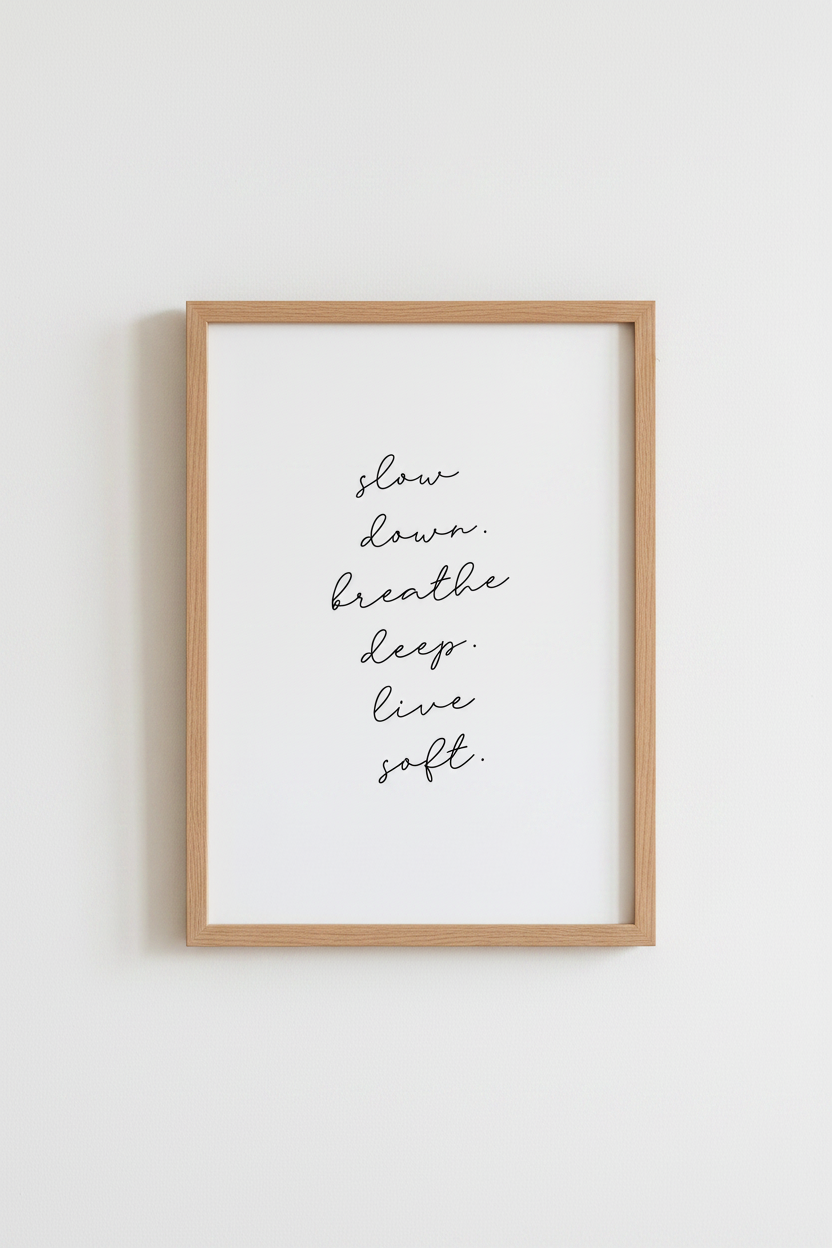 slow
down.
breathe
deep.
live
soft.